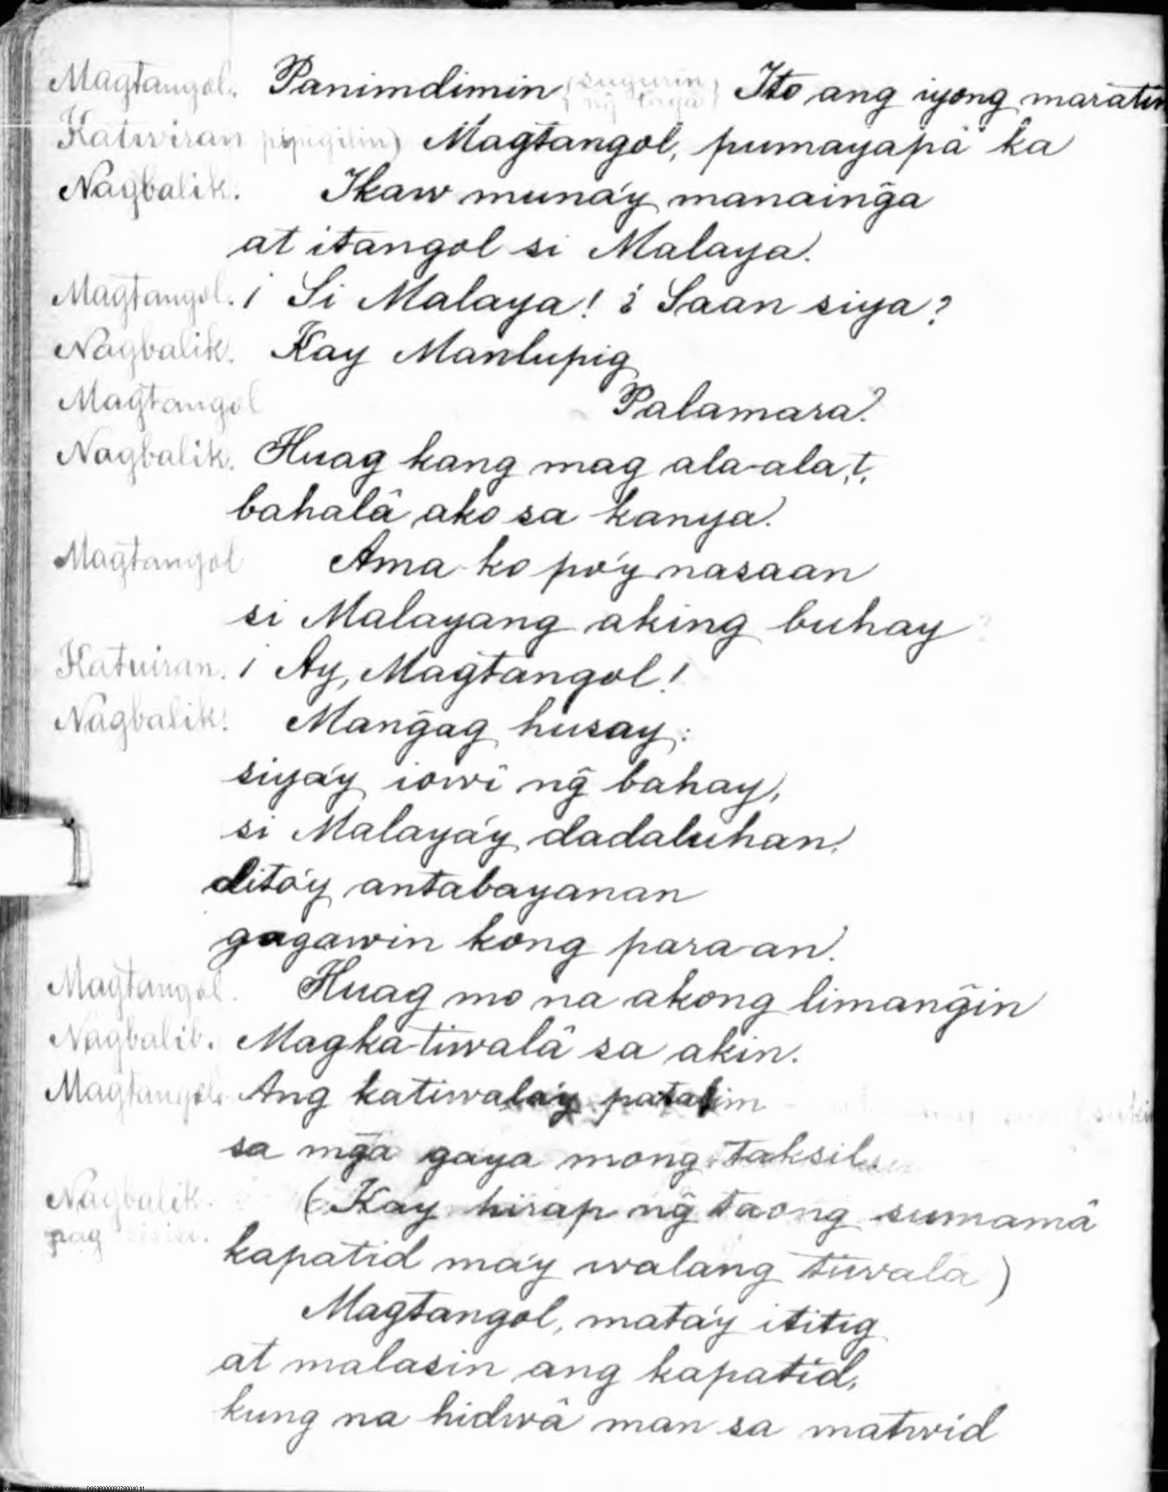 Magtangol. Panimdimin (sugurin ng taga) Ito ang iyong maratin
Katwiran pipigilin) Magtangol, pumayapâ ka
Nagbalik. Ikaw muna'y manaing̃a
at itangol si Malaya.
Magtangol. ¡ Si Malaya! ¿ Saan siya?
Nagbalik. Kay Manlupig
Magtangol Palamara?
Nagbalik. Huag kang mag ala-ala,t,
bahalâ ako sa kanya.
Magtangol Ama ko po'y nasaan
si Malayang aking buhay ?
Katuiran. ¡ Ay, Magtangol!
Nagbalik. Mang̃ag husay:
siya'y iowî ng̃ bahay,
si Malaya'y dadaluhan,
dito'y antabayanan
gagawin kong para-an.
Magtangol. Huag mo na akong limang̃in
Nagbalik. Magka-tiwalâ sa akin.
Magtangol. Ang katiwala'y patalim
sa mg̃a gaya mong taksil.
Nagbalik. (Kay hirap ng̃ taong sumamâ
pag
kapatid ma'y walang tiwala)
Magtangol, mata'y ititig
at malasin ang kapatid,
kung na hidwâ man sa matwid